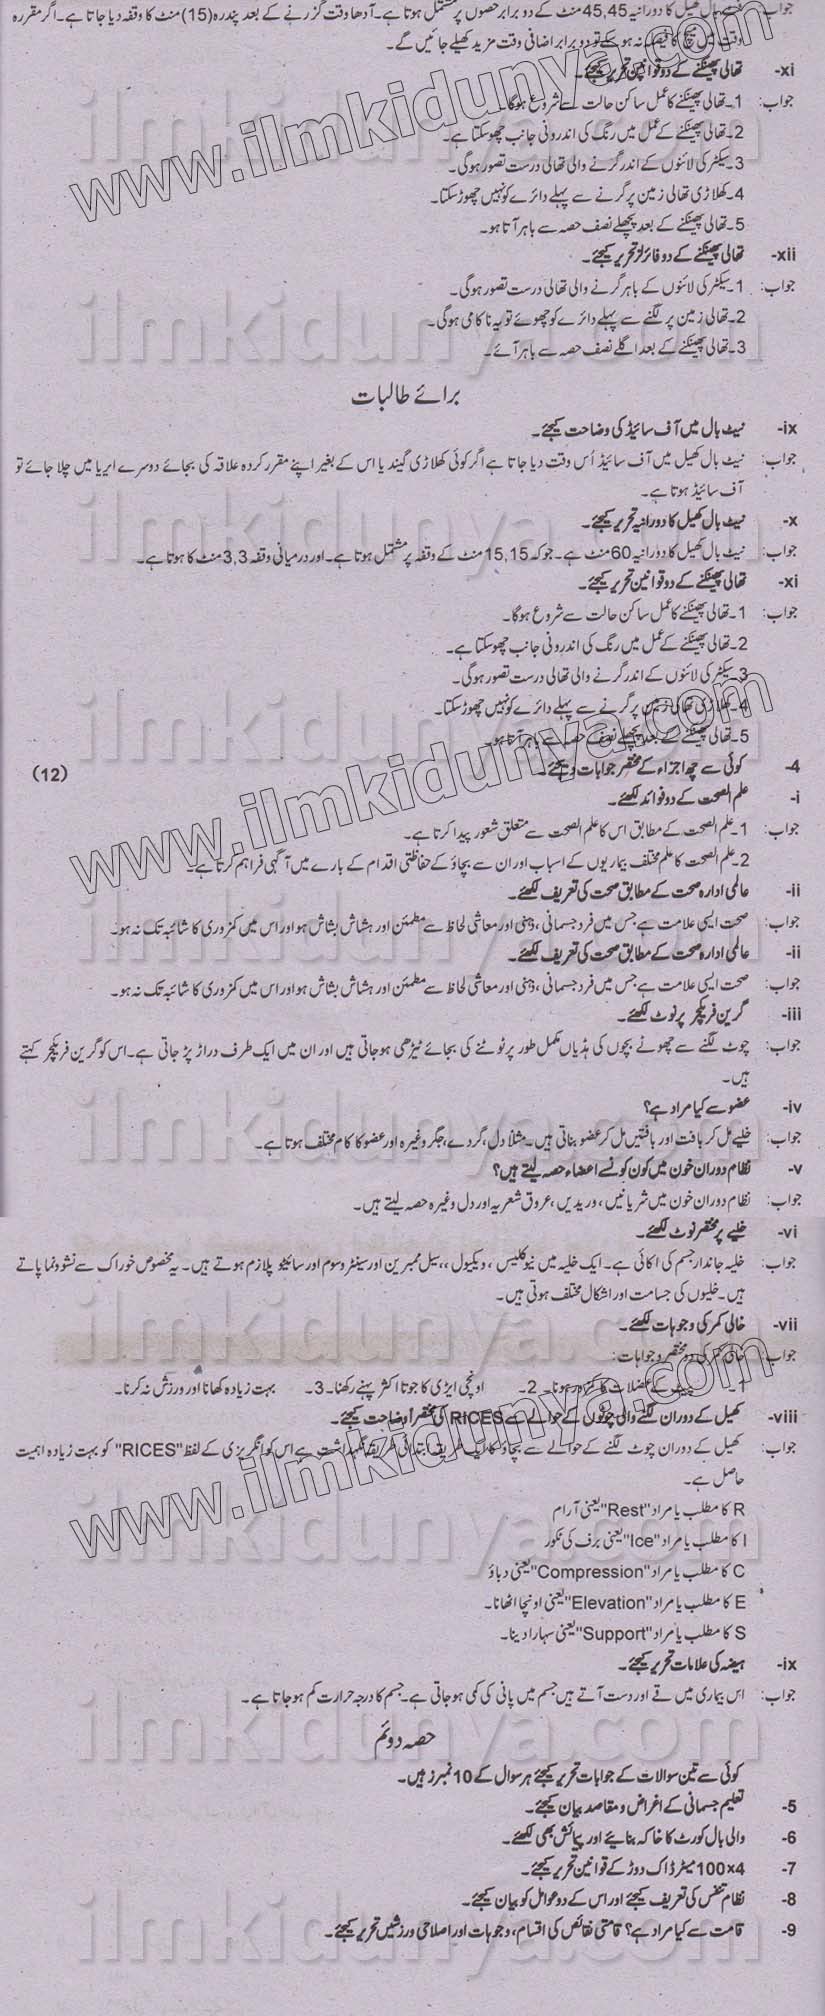 جواب: فٹ بال کھیل کا دورانیہ 45,45 منٹ کے دو برابر حصوں پر مشتمل ہوتا ہے۔ آدھا وقت گزرنے کے بعد پندرہ (15) منٹ کا وقفہ دیا جاتا ہے۔ اگر مقررہ
وقت میں میچ کا فیصلہ نہ ہو سکے تو دو برابر اضافی وقت مزید کھیلے جائیں گے۔
xi- تھالی پھینکنے کے دو قوانین تحریر کیجئے۔
جواب: 1۔ تھالی پھینکنے کا عمل ساکن حالت سے شروع ہوگا۔
2۔ تھالی پھینکنے کے عمل میں رنگ کی اندرونی جانب چھو سکتا ہے۔
3۔ سیکٹر کی لائنوں کے اندر گرنے والی تھالی درست تصور ہوگی۔
4۔ کھلاڑی تھالی زمین پر گرنے سے پہلے دائرے کو نہیں چھوڑ سکتا۔
5۔ تھالی پھینکنے کے بعد پچھلے نصف حصہ سے باہر آتا ہو۔
xii- تھالی پھینکنے کے دو فائرلز تحریر کیجئے۔
جواب: 1۔ سیکٹر کی لائنوں کے باہر گرنے والی تھالی درست تصور ہوگی۔
2۔ تھالی زمین پر لگنے سے پہلے دائرے کو چھوئے تو یہ ناکامی ہوگی۔
3۔ تھالی پھینکنے کے بعد اگلے نصف حصہ سے باہر آئے۔
برائے طالبات
ix- نیٹ بال میں آف سائیڈ کی وضاحت کیجئے۔
جواب: نیٹ بال کھیل میں آف سائیڈ اُس وقت دیا جاتا ہے اگر کوئی کھلاڑی گیند یا اس کے بغیر اپنے مقرر کردہ علاقہ کی بجائے دوسرے ایریا میں چلا جائے تو
آف سائیڈ ہوتا ہے۔
x- نیٹ بال کھیل کا دورانیہ تحریر کیجئے۔
جواب: نیٹ بال کھیل کا دورانیہ 60 منٹ ہے۔ جو کہ 15,15 منٹ کے وقفہ پر مشتمل ہوتا ہے۔ اور درمیانی وقفہ 3,3 منٹ کا ہوتا ہے۔
xi- تھالی پھینکنے کے دو قوانین تحریر کیجئے۔
جواب: 1۔ تھالی پھینکنے کا عمل ساکن حالت سے شروع ہوگا۔
2۔ تھالی پھینکنے کے عمل میں رنگ کی اندرونی جانب چھو سکتا ہے۔
3۔ سیکٹر کی لائنوں کے اندر گرنے والی تھالی درست تصور ہوگی۔
4۔ کھلاڑی تھالی زمین پر گرنے سے پہلے دائرے کو نہیں چھوڑ سکتا۔
5۔ تھالی پھینکنے کے بعد پچھلے نصف حصہ سے باہر آتا ہو۔
4- کوئی سے چھ اجزاء کے مختصر جوابات دیجئے۔ (12)
i- علم الصحت کے دو فوائد لکھئے۔
جواب: 1۔ علم الصحت کے مطابق اس کا علم الصحت سے متعلق شعور پیدا کرتا ہے۔
2۔ علم الصحت کا علم مختلف بیماریوں کے اسباب اور ان سے بچاؤ کے حفاظتی اقدام کے بارے میں آگہی فراہم کرتا ہے۔
ii- عالمی ادارہ صحت کے مطابق صحت کی تعریف لکھئے۔
جواب: صحت ایسی علامت ہے جس میں فرد جسمانی، ذہنی اور معاشی لحاظ سے مطمئن اور ہشاش بشاش ہو اور اس میں کمزوری کا شائبہ تک نہ ہو۔
ii- عالمی ادارہ صحت کے مطابق صحت کی تعریف لکھئے۔
جواب: صحت ایسی علامت ہے جس میں فرد جسمانی، ذہنی اور معاشی لحاظ سے مطمئن اور ہشاش بشاش ہو اور اس میں کمزوری کا شائبہ تک نہ ہو۔
iii- گرین فریکچر پر نوٹ لکھئے۔
جواب: چوٹ لگنے سے چھوٹے بچوں کی ہڈیاں مکمل طور پر ٹوٹنے کی بجائے ٹیڑھی ہو جاتی ہیں اور ان میں ایک طرف دراڑ پڑ جاتی ہے۔ اس کو گرین فریکچر کہتے
ہیں۔
iv- عضو سے کیا مراد ہے؟
جواب: خلیے مل کر بافت اور بافتیں مل کر عضو بناتی ہیں۔ مثلاً دل، گردے، جگر وغیرہ اور عضو کا کام مختلف ہوتا ہے۔
v- نظام دوران خون میں کون کونسے اعضاء حصہ لیتے ہیں؟
جواب: نظام دوران خون میں شریانیں، وریدیں، عروق شعریہ اور دل وغیرہ حصہ لیتے ہیں۔
vi- خلیے پر مختصر نوٹ لکھئے۔
جواب: خلیہ جاندار جسم کی اکائی ہے۔ ایک خلیہ میں نیوکلیس، ویکیول،، سیل ممبرین اور سینٹروسوم اور سائیٹو پلازم ہوتے ہیں۔ یہ مخصوص خوراک سے نشوونما پاتے
ہیں۔ خلیوں کی جسامت اور اشکال مختلف ہوتی ہیں۔
vii- خالی کمر کی وجوہات لکھئے۔
جواب: خالی کمر کی دو مختصر وجوہات:
1۔ کے عضلات کا کمزور ہونا۔ 2۔ اونچی ایڑی کا جوتا اکثر پہنے رکھنا۔ 3۔ بہت زیادہ کھانا اور ورزش نہ کرنا۔
viii- کھیل کے دوران لگنے والی چوٹوں کے حوالے سے RICES کی مختصراً وضاحت کیجئے۔
جواب: کھیل کے دوران چوٹ لگنے کے حوالے سے بچاؤ کا ایک طریقہ ابتدائی طریقہ نگہداشت ہے اس کو انگریزی کے لفظ "RICES" کو بہت زیادہ اہمیت
حاصل ہے۔
R کا مطلب یا مراد "Rest" یعنی آرام
I کا مطلب یا مراد "Ice" یعنی برف کی ٹکور
C کا مطلب یا مراد "Compression" یعنی دباؤ
E کا مطلب یا مراد "Elevation" یعنی اونچا اٹھانا۔
S کا مطلب یا مراد "Support" یعنی سہارا دینا۔
ix- ہیضہ کی علامات تحریر کیجئے۔
جواب: اس بیماری میں قے اور دست آتے ہیں جسم میں پانی کی کمی ہو جاتی ہے۔ جسم کا درجہ حرارت کم ہو جاتا ہے۔
حصہ دوئم
کوئی سے تین سوالات کے جوابات تحریر کیجئے ہر سوال کے 10 نمبرز ہیں۔
5- تعلیم جسمانی کے اغراض و مقاصد بیان کیجئے۔
6- والی بال کورٹ کا خاکہ بنائیے اور پیمائش بھی لکھئے۔
7- 100×4 میٹر ڈاک دوڑ کے قوانین تحریر کیجئے۔
8- نظام تنفس کی تعریف کیجئے اور اس کے دو عوامل کو بیان کیجئے۔
9- قامت سے کیا مراد ہے؟ قامتی نقائص کی اقسام، وجوہات اور اصلاحی ورزشیں تحریر کیجئے۔
www.ilmkidunya.com
www.ilmkidunya.com
www.ilmkidunya.com